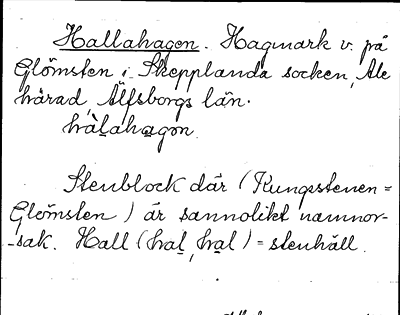 Hallahagen. Hagmark v. på
Glömsten i Skepplanda socken, Ale
härad, Älfsborgs län.
hàlahagən.
Stenblock där (Kungsstenen =
Glömsten) är sannolikt namnor-
-sak. Hall (hal, hal) = stenhäll.